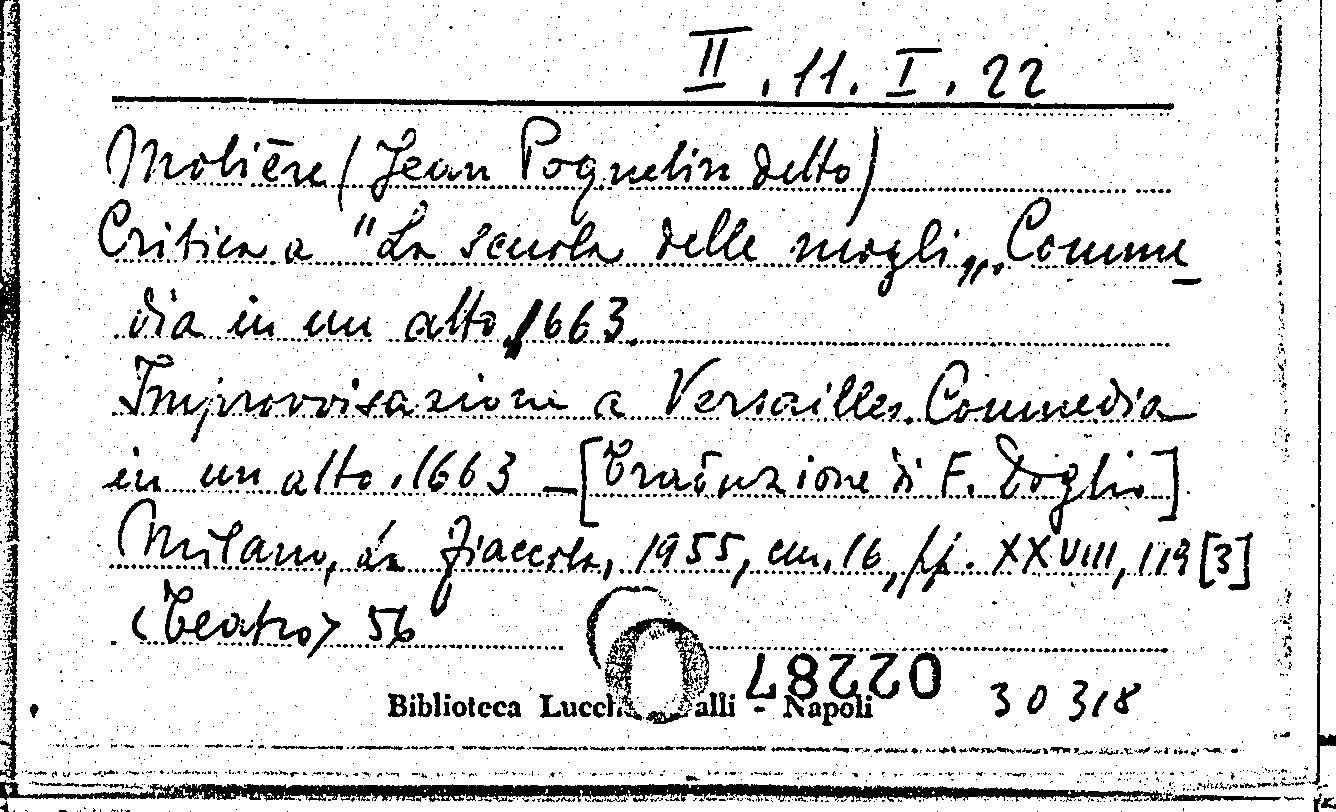 II. 11. I. 22
Molière (Jean Poquelin detto)
Critica a "La scuola delle mogli„. Comme_
dia in un atto, 1663.
Improvvisazione a Versailles. Commedia
in un atto. 1663 – [Traduzione di F. Doglio]
Milano, La Fiaccola, 1955, cm. 16, pp. XXVIII, 119 [3]
<Teatro> 56
02287
Biblioteca Lucch alli - Napoli
30318